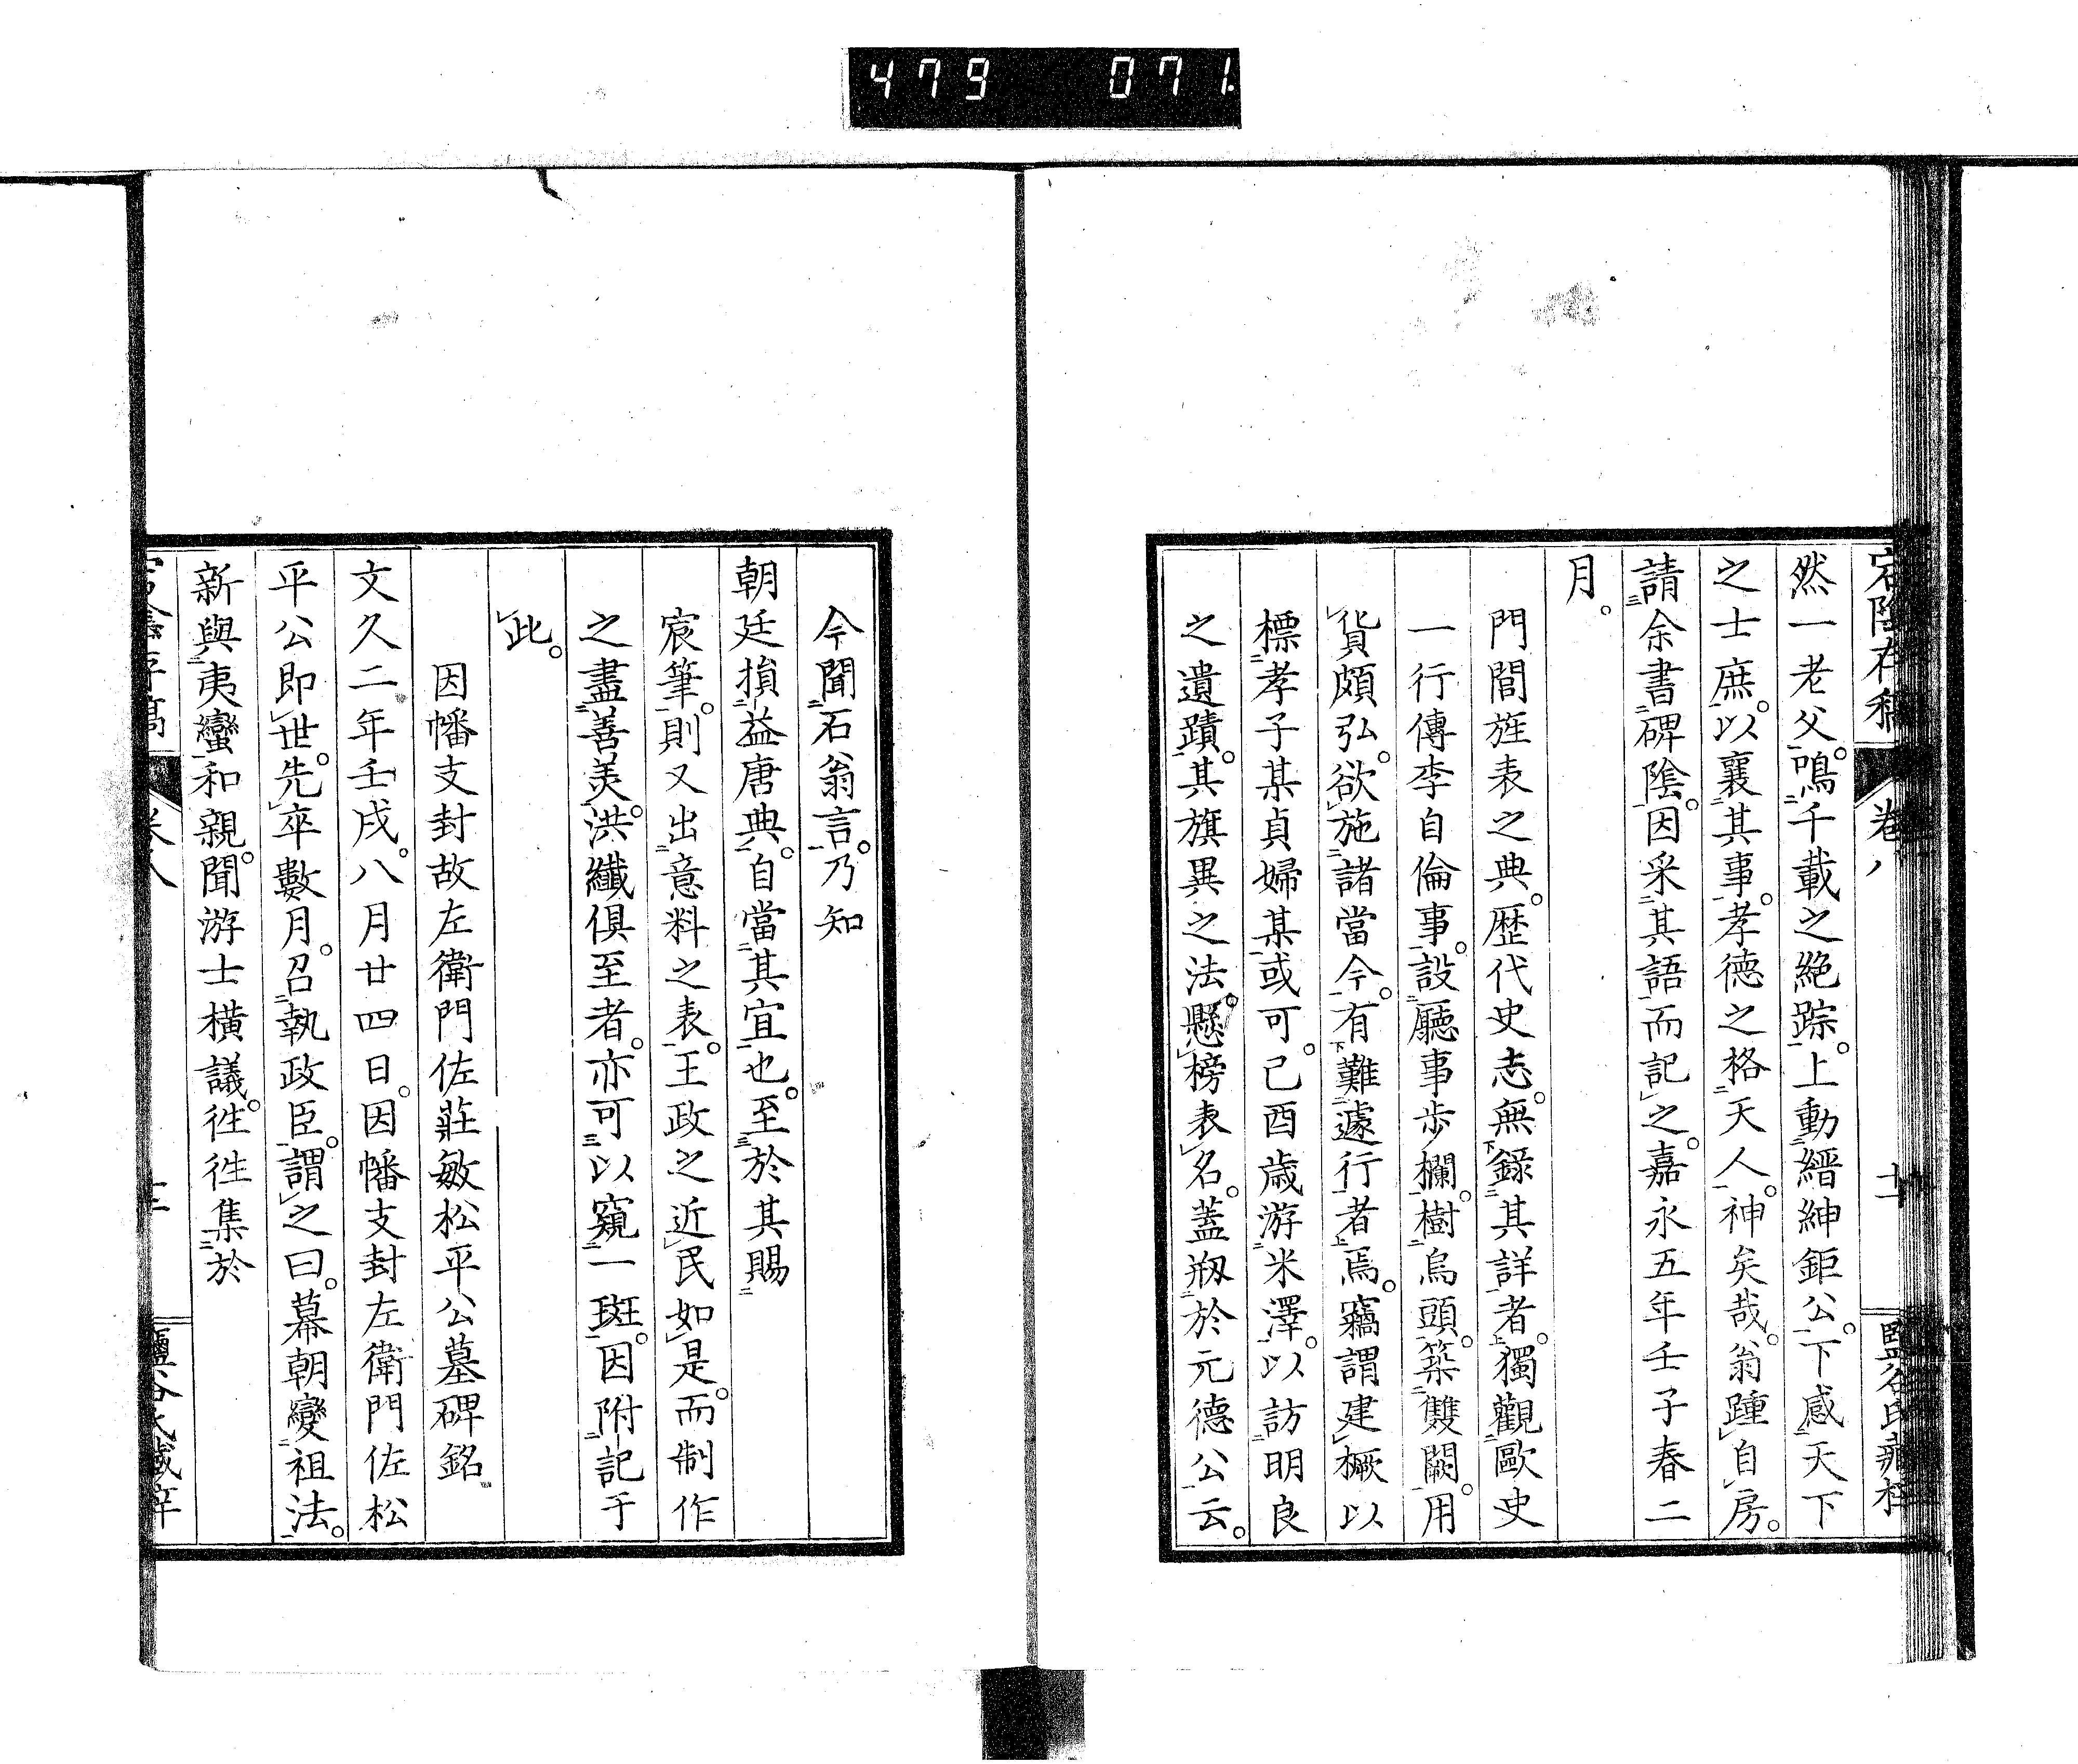 479 071.
宕陰存稿 卷八 十二 鹽谷氏藏梓
然一老父。鳴千載之絶踪。上動縉紳鉅公。下感天下
之士庶。以襄其事。孝德之格天人。神矣哉。翁踵自房。
請余書碑陰。因采其語而記之。嘉永五年壬子春二
月。
門閭旌表之典。歷代史志。無錄其詳者。獨觀歐史
一行傳李自倫事。設廳事步欄。樹烏頭。築雙闕。用
貨頗弘。欲施諸當今。有難遽行者焉。竊謂建橛以
標孝子某貞婦某。或可。己酉歲游米澤。以訪明良
之遺蹟。其旗異之法。懸榜表名。蓋剏於元德公云。
今聞石翁言。乃知
朝廷損益唐典。自當其宜也。至於其賜
宸筆。則又出意料之表。王政之近民如是。而制作
之盡善美。洪纖俱至者。亦可以窺一斑。因附記于
此。
因幡支封故左衛門佐莊敏松平公墓碑銘
文久二年壬戌。八月廿四日。因幡支封左衛門佐松
平公即世。先卒數月。召執政臣。謂之曰。幕朝變祖法。
新與夷蠻和親。聞游士橫議。徃徃集於